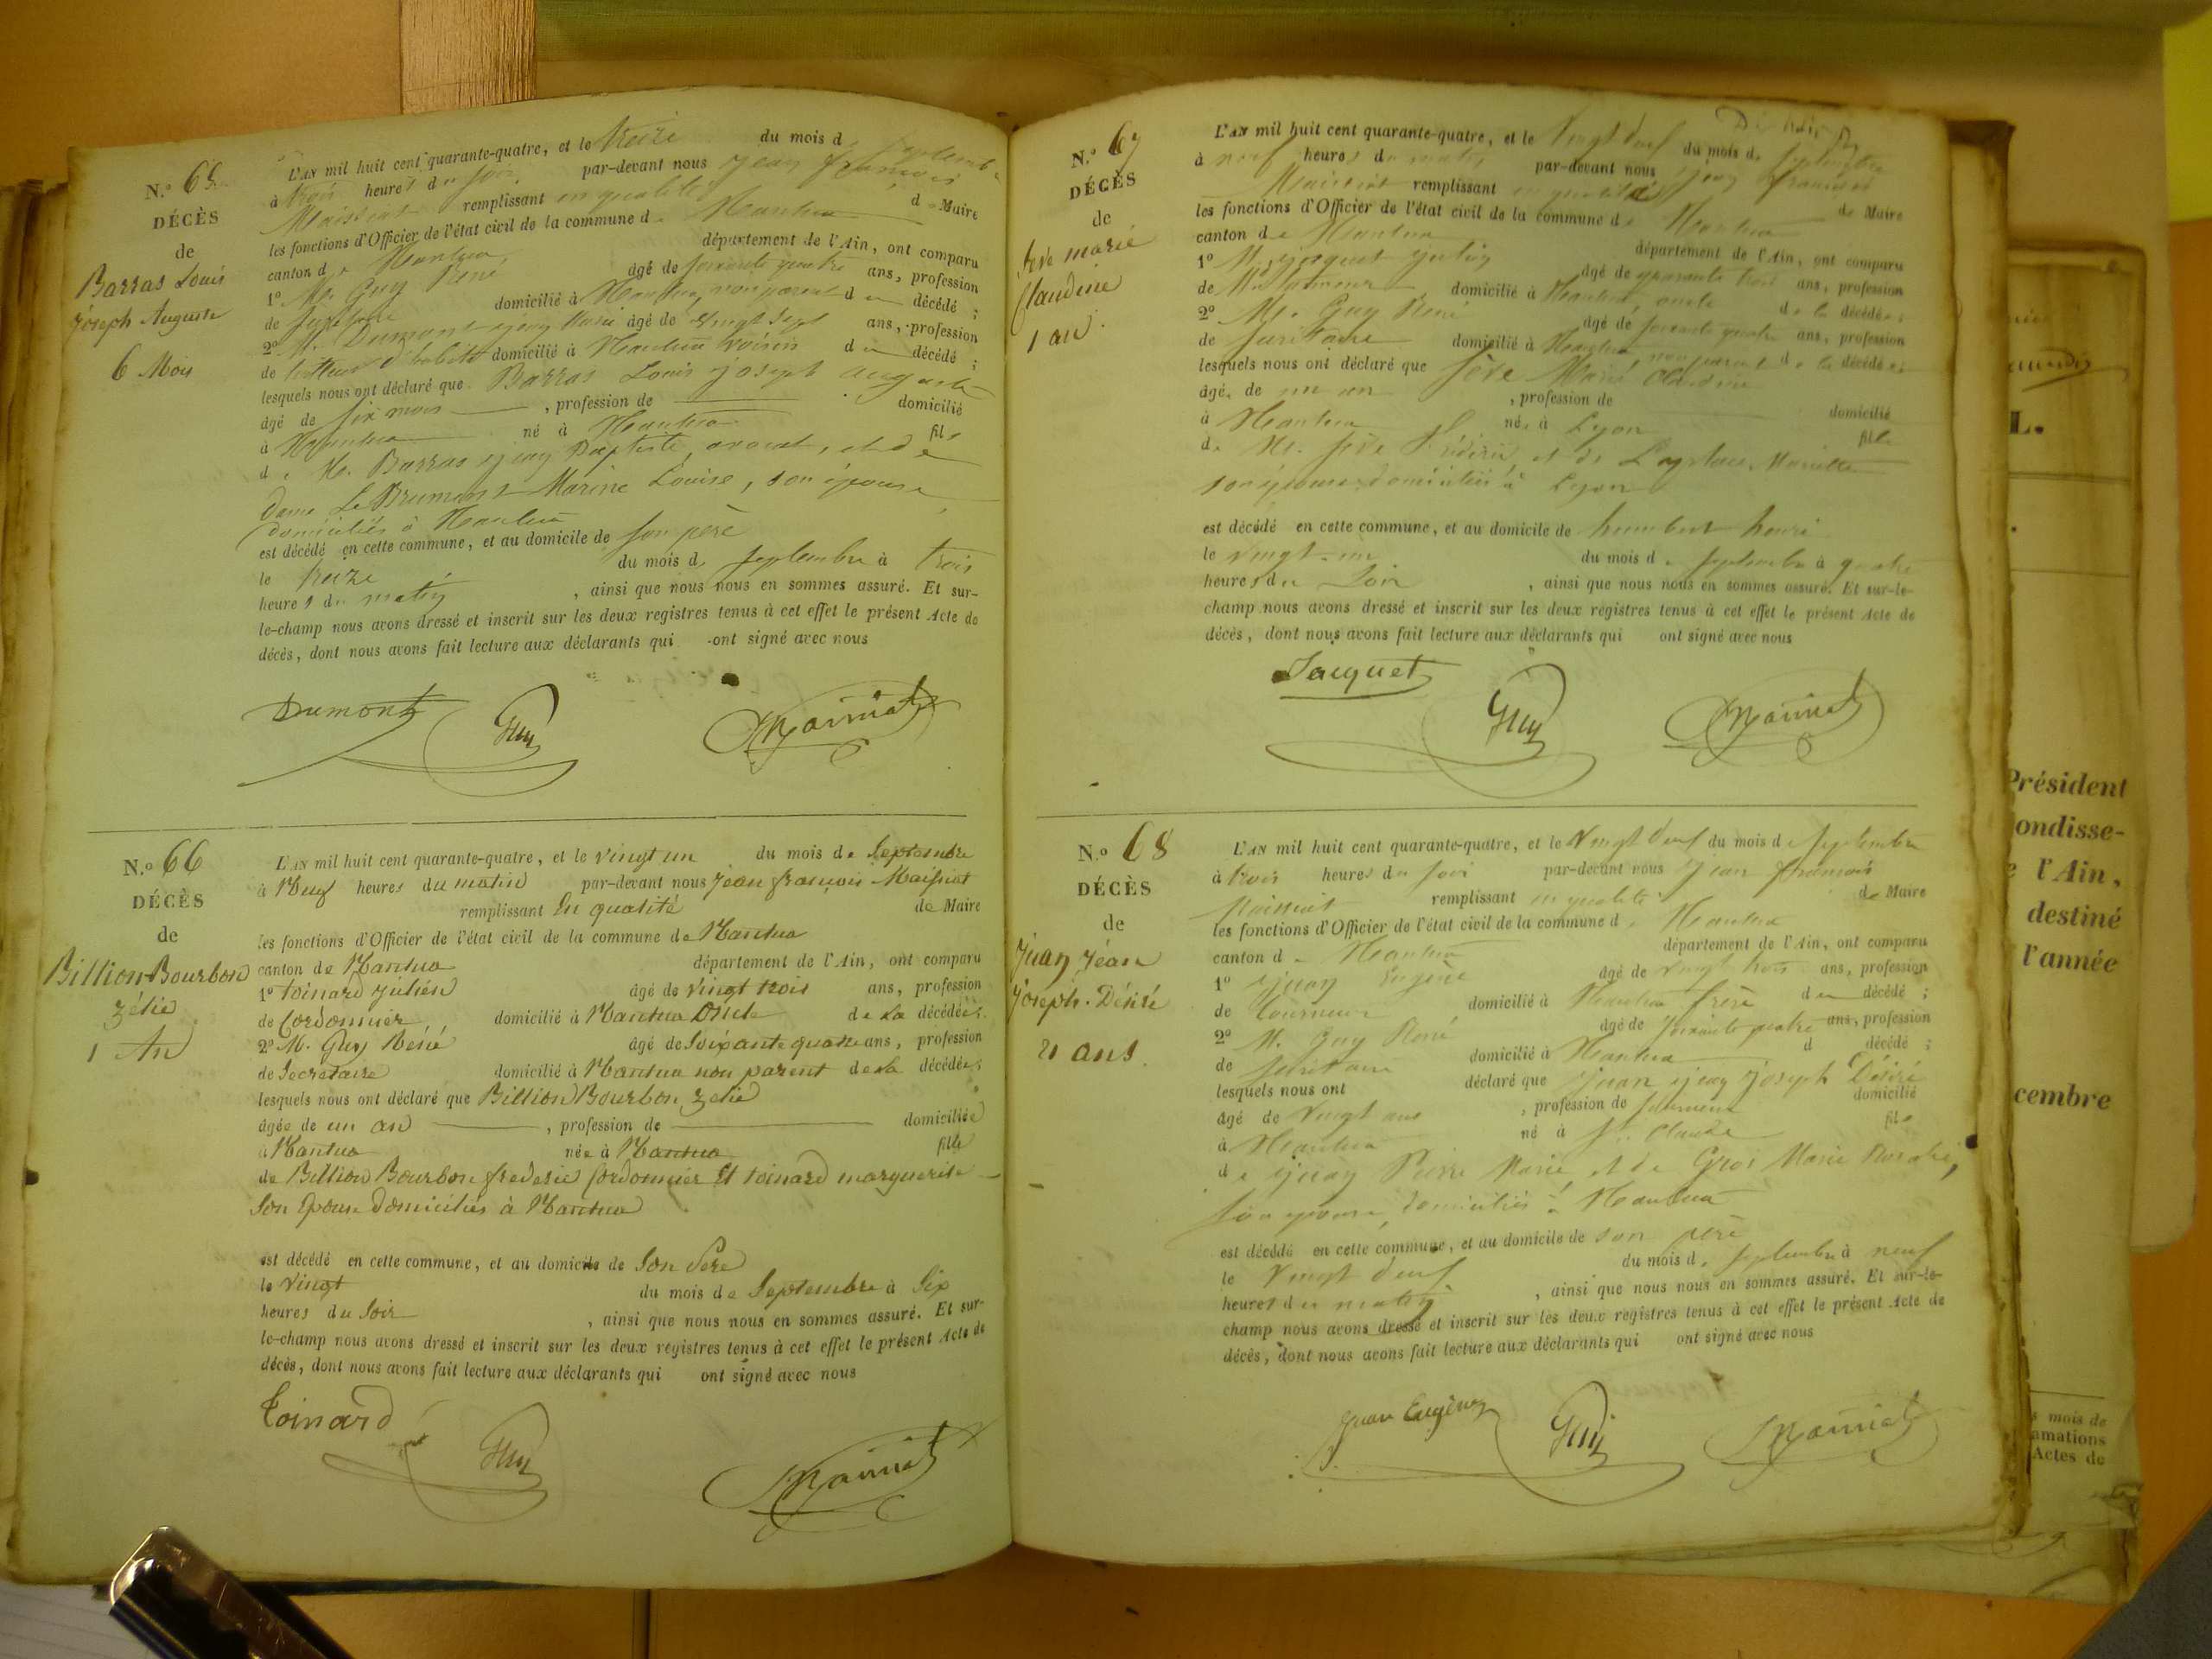 N.º 65
DÉCÈS
de
Barras Louis
Joseph Auguste
6 Mois
L'AN mil huit cent quarante-quatre, et le treize du mois de septembre
à trois heures du soir par-devant nous Jean François
Maissiat remplissant en qualité de Maire
les fonctions d'Officier de l'état civil de la commune de Nantua
canton de Nantua département de l'Ain, ont comparu
1º M. Guy René âgé de soixante quatre ans, profession
de secrétaire domicilié à Nantua, non parent du décédé ;
2º M. Dumont Jean Marie âgé de vingt sept ans, profession
de domicilié à Nantua voisin du décédé ;
lesquels nous ont déclaré que Barras Louis Joseph Auguste
âgé de six mois , profession de domicilié
à Nantua né à Nantua fils
de M. Barras Jean Baptiste, avocat, et de
Dame Le Brument Marine Louise, son épouse
domiciliés à Nantua
est décédé en cette commune, et au domicile de son père
le treize du mois de septembre à trois
heures du matin , ainsi que nous nous en sommes assuré. Et sur-
le-champ nous avons dressé et inscrit sur les deux registres tenus à cet effet le présent Acte de
décès, dont nous avons fait lecture aux déclarants qui ont signé avec nous
Dumont Guy Maissiat
N.º 66
DÉCÈS
de
Billion Bourbon
Zélie
1 An
L'AN mil huit cent quarante-quatre, et le vingt un du mois de Septembre
à Neuf heures du matin par-devant nous Jean francois Maissiat
remplissant En qualité de Maire
les fonctions d'Officier de l'état civil de la commune de Nantua
canton de Nantua département de l'Ain, ont comparu
1º toinard Julien âgé de vingt trois ans, profession
de Cordonnier domicilié à Nantua Oncle de la décédée ;
2º M. Guy Réné âgé de Soixante quatre ans, profession
de Secretaire domicilié à Nantua non parent de la décédée ;
lesquels nous ont déclaré que Billion Bourbon Zelie
âgée de un an , profession de domiciliée
à Nantua née à Nantua fille
de Billion Bourbon frederic Cordonnier Et toinard marguerite
Son Epouse Domiciliés à Nantua
est décédé en cette commune, et au domicile de Son Père
le vingt du mois de Septembre à Six
heures du Soir , ainsi que nous nous en sommes assuré. Et sur-
le-champ nous avons dressé et inscrit sur les deux registres tenus à cet effet le présent Acte de
décès, dont nous avons fait lecture aux déclarants qui ont signé avec nous
Toinard Guy Maissiat
N.º 67
DÉCÈS
de
marie
Claudine
1 an.
L'AN mil huit cent quarante-quatre, et le vingt deux du mois de septembre
à neuf heures du matin par-devant nous Jean François
Maissiat remplissant en qualité de Maire
les fonctions d'Officier de l'état civil de la commune de Nantua
canton de Nantua département de l'Ain, ont comparu
1º M. Jacquet âgé de quarante trois ans, profession
de domicilié à Nantua, oncle de la décédée ;
2º M. Guy René âgé de soixante quatre ans, profession
de secrétaire domicilié à Nantua non parent de la décédée ;
lesquels nous ont déclaré que Marie Claudine
âgé, de un an , profession de domicilié
à Nantua née à Lyon fille
de M. Frédéric et de
son épouse domiciliés à Lyon
est décédé en cette commune, et au domicile de humbert henri
le vingt-un du mois de septembre à quatre
heures du Soir , ainsi que nous nous en sommes assuré. Et sur-le-
champ nous avons dressé et inscrit sur les deux registres tenus à cet effet le présent Acte de
décès, dont nous avons fait lecture aux déclarants qui ont signé avec nous
Jacquet Guy Maissiat
N.º 68
DÉCÈS
de
Juan Jéan
Joseph. Désiré
21 ans.
L'AN mil huit cent quarante-quatre, et le vingt deux du mois de septembre
à trois heures du soir par-devant nous Jean François
Maissiat remplissant en qualité de Maire
les fonctions d'Officier de l'état civil de la commune de Nantua
canton de Nantua département de l'Ain, ont comparu
1º Juan Eugène âgé de vingt trois ans, profession
de tourneur domicilié à Nantua frère du décédé ;
2º M. Guy René âgé de soixante quatre ans, profession
de secrétaire domicilié à Nantua d décédé ;
lesquels nous ont déclaré que Juan Jean Joseph Désiré
âgé de vingt ans , profession de tourneur domicilié
à Nantua né à St. Claude fils
de Juan Pierre Marie et de Gros Marie
son épouse, domiciliés à Nantua
est décédé en cette commune, et au domicile de son père
le vingt deux du mois de septembre à neuf
heures du matin , ainsi que nous nous en sommes assuré. Et sur-le-
champ nous avons dressé et inscrit sur les deux registres tenus à cet effet le présent Acte de
décès, dont nous avons fait lecture aux déclarants qui ont signé avec nous
Juan Eugène Guy Maissiat
L.
Président
ondisse-
e l'Ain,
destiné
l'année
cembre
s mois de
amations
Actes de